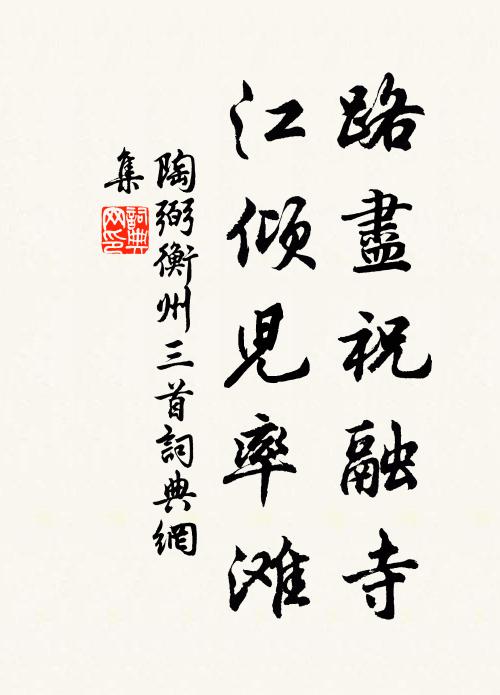 路盡祝融寺
江傾児率滩
陶弼衡州三首詞典網
集
詞典网印